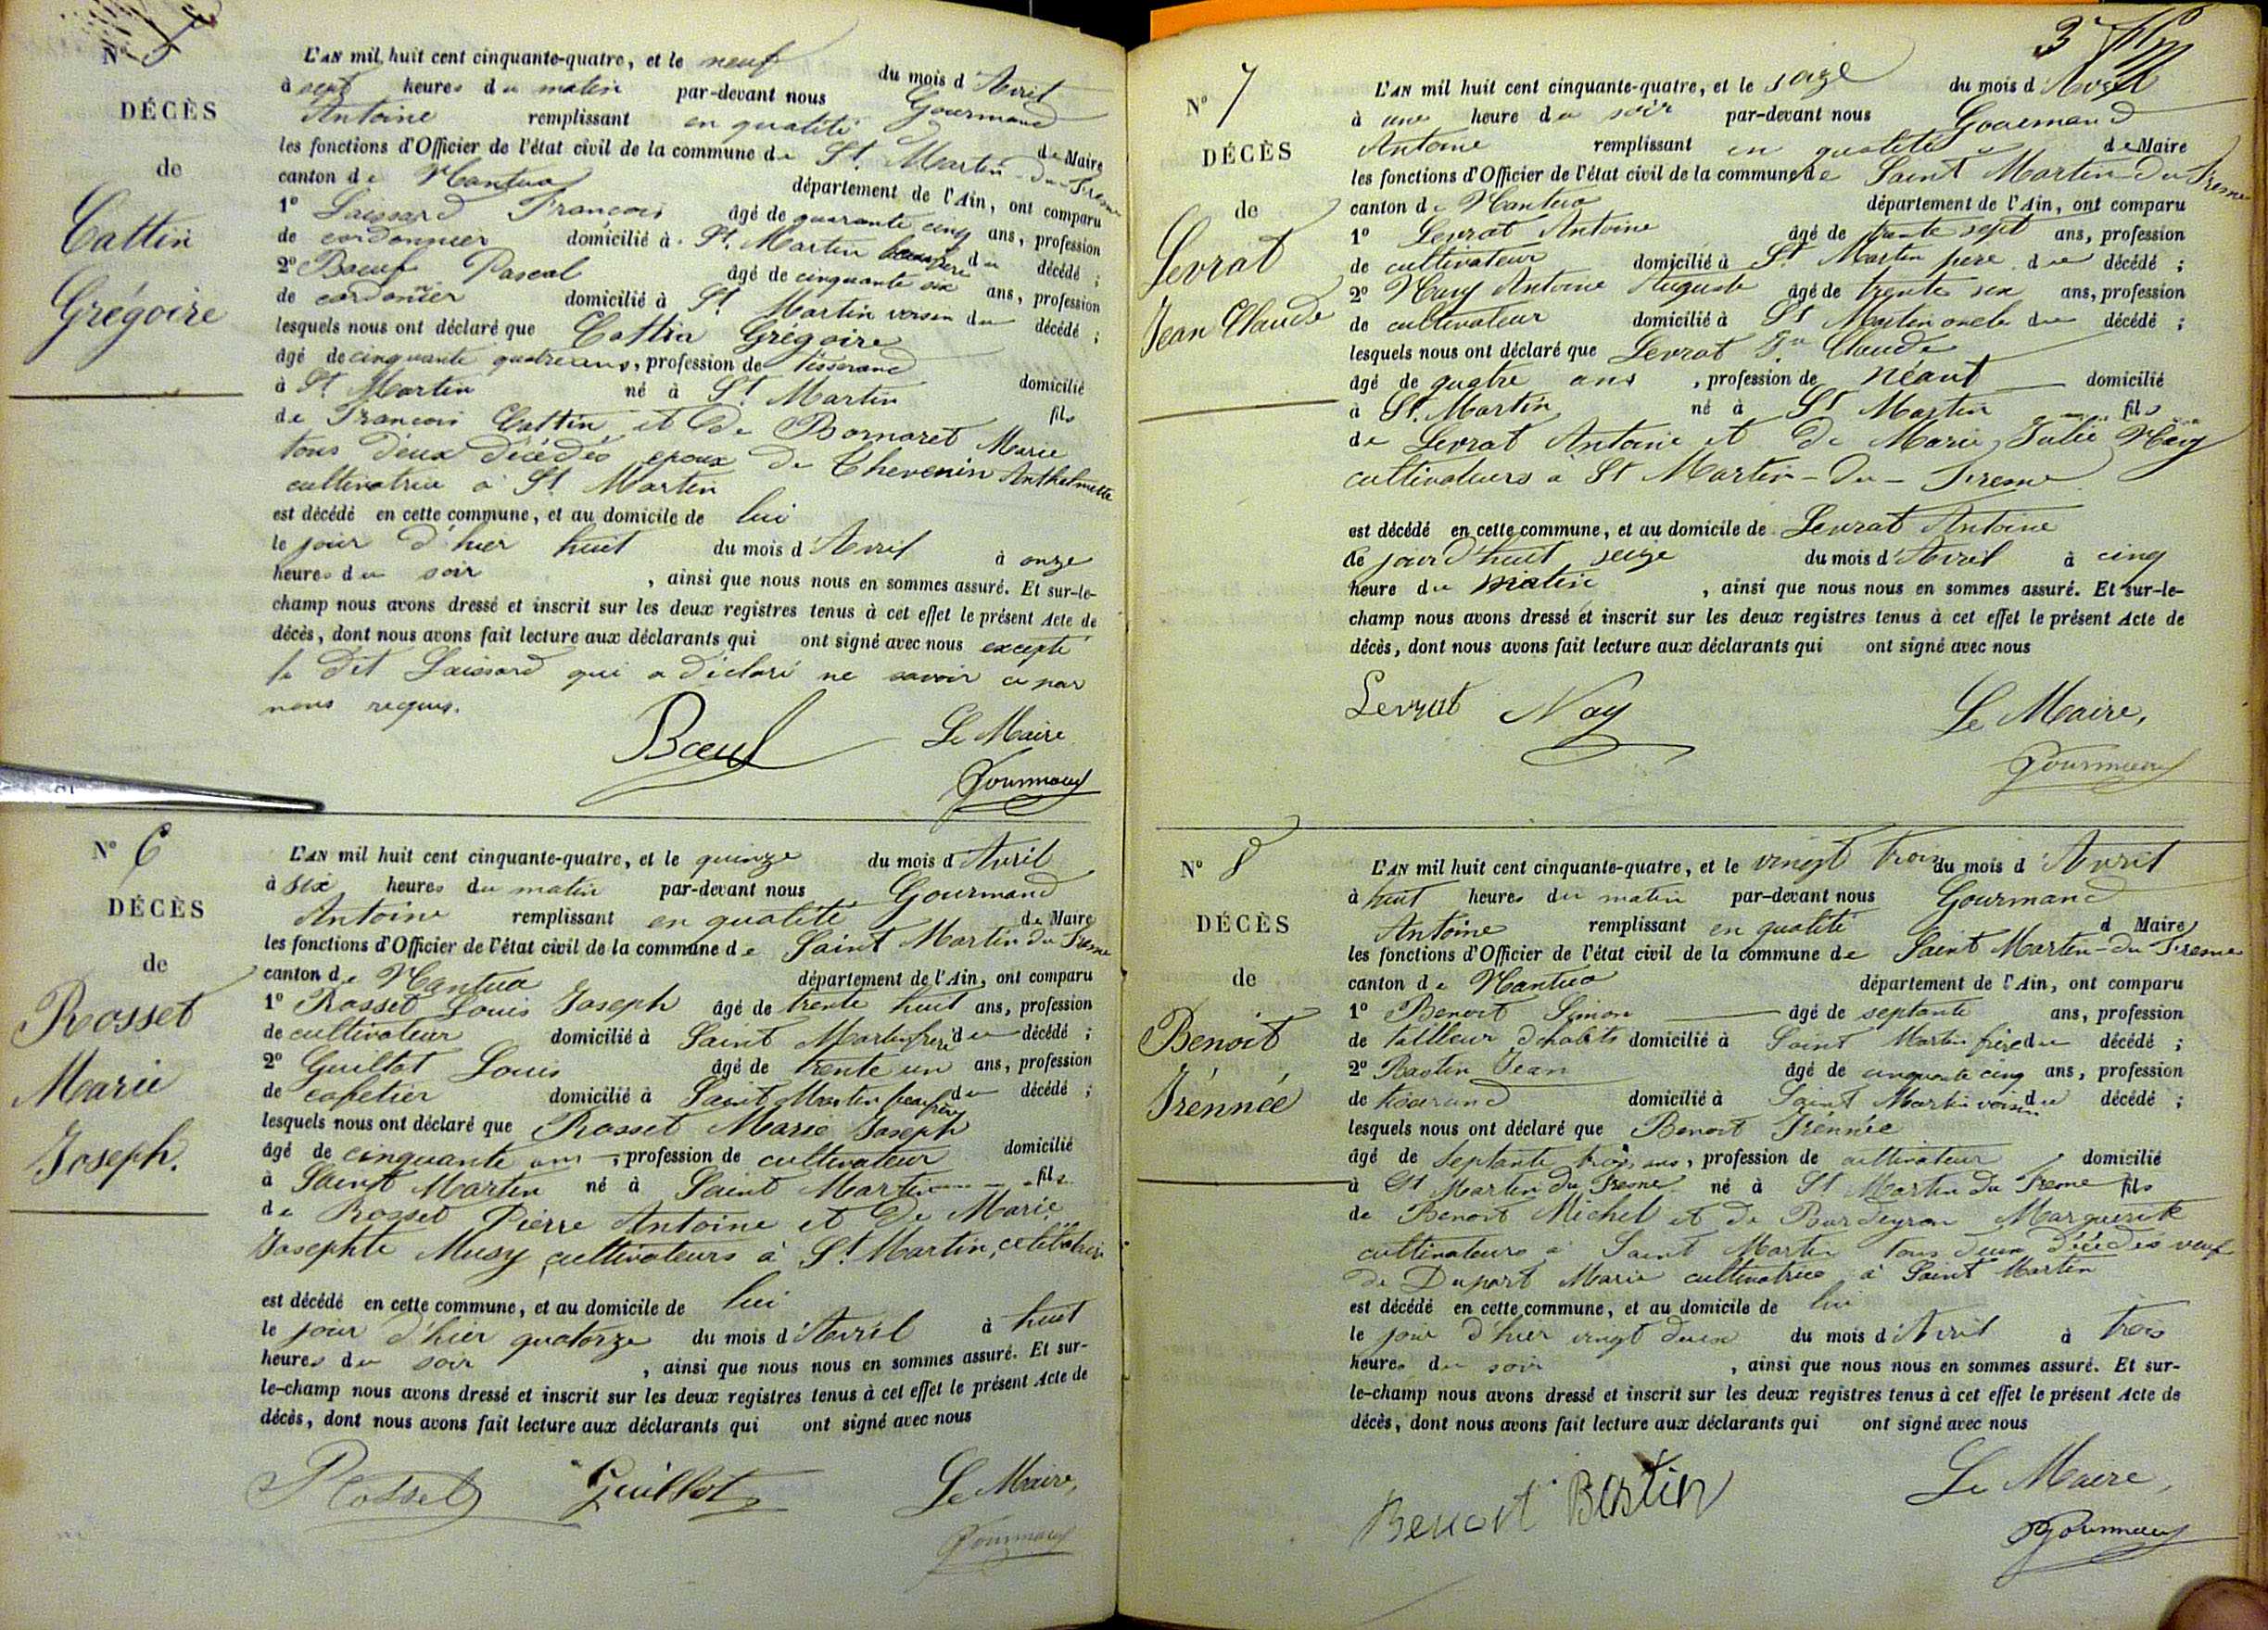 N° 5
DÉCÈS
de
Cattin
Grégoire
L'AN mil huit cent cinquante-quatre, et le neuf du mois d'Avril
à sept heures du matin par-devant nous Gourmand
Antoine remplissant en qualité de Maire
les fonctions d'Officier de l'état civil de la commune de St. Martin-du-Fresne
canton de Nantua département de l'Ain, ont comparu
1° Laissard François âgé de quarante cinq ans, profession
de cordonnier domicilié à St. Martin beaufrere du décédé ;
2° Bœuf Pascal âgé de cinquante six ans, profession
de cordonier domicilié à St. Martin voisin du décédé ;
lesquels nous ont déclaré que Cattin Grégoire
âgé de cinquante quatre ans, profession de tisserand
domicilié
à St. Martin né à St. Martin fils
de François Cattin et de Bornaret Marie
tous deux décédés epoux de Chevenin Anthelmette
cultivatrice à St. Martin
est décédé en cette commune, et au domicile de lui
le jour d'hier huit du mois d'Avril à onze
heures du soir , ainsi que nous nous en sommes assuré. Et sur-le-
champ nous avons dressé et inscrit sur les deux registres tenus à cet effet le présent Acte de
décès, dont nous avons fait lecture aux déclarants qui ont signé avec nous excepté
le dit Laissard qui a déclaré ne savoir ce par
nous requis.
Bœuf Le Maire
Gourmand
N° 6
DÉCÈS
de
Rosset
Marie
Joseph.
L'AN mil huit cent cinquante-quatre, et le quinze du mois d'Avril
à six heures du matin par-devant nous Gourmand
Antoine remplissant en qualité de Maire
les fonctions d'Officier de l'état civil de la commune de Saint Martin du Fresne
canton de Nantua département de l'Ain, ont comparu
1° Rosset Louis Joseph âgé de trente huit ans, profession
de cultivateur domicilié à Saint Martin frere du décédé ;
2° Guillot Louis âgé de trente un ans, profession
de cafetier domicilié à Saint Martin beaufrère du décédé ;
lesquels nous ont déclaré que Rosset Marie Joseph
âgé de cinquante ans , profession de cultivateur domicilié
à Saint Martin né à Saint Martin fils
de Rosset Pierre Antoine et de Marie
Josephte Musy cultivateurs à St. Martin, célibataire
est décédé en cette commune, et au domicile de lui
le jour d'hier quatorze du mois d'Avril à huit
heures du soir , ainsi que nous nous en sommes assuré. Et sur-
le-champ nous avons dressé et inscrit sur les deux registres tenus à cet effet le présent Acte de
décès, dont nous avons fait lecture aux déclarants qui ont signé avec nous
Rosset Guillot Le Maire,
Gourmand
3
N° 7
DÉCÈS
de
Levrat
Jean Claude
L'AN mil huit cent cinquante-quatre, et le seize du mois d'Avril
à une heure du soir par-devant nous Gourmand
Antoine remplissant en qualité de Maire
les fonctions d'Officier de l'état civil de la commune de Saint Martin-du Fresne
canton de Nantua département de l'Ain, ont comparu
1° Levrat Antoine âgé de trente sept ans, profession
de cultivateur domicilié à St. Martin pere du décédé ;
2° Nay Antoine Auguste âgé de trente six ans, profession
de cultivateur domicilié à St Martin oncle du décédé ;
lesquels nous ont déclaré que Levrat Jn Claude
âgé de quatre ans , profession de néant domicilié
à St. Martin né à St Martin fils
de Levrat Antoine et de Marie Julie Nay
cultivateurs a St Martin-du-Fresne
est décédé en cette commune, et au domicile de Levrat Antoine
le jour d'huit seize du mois d'Avril à cinq
heure du matin , ainsi que nous nous en sommes assuré. Et sur-le-
champ nous avons dressé et inscrit sur les deux registres tenus à cet effet le présent Acte de
décès, dont nous avons fait lecture aux déclarants qui ont signé avec nous
Levrat Nay Le Maire,
Gourmand
N° 8
DÉCÈS
de
Benoit
Irénnée
L'AN mil huit cent cinquante-quatre, et le vingt trois du mois d'Avril
à huit heures du matin par-devant nous Gourmand
Antoine remplissant en qualité d Maire
les fonctions d'Officier de l'état civil de la commune de Saint Martin-du Fresne
canton de Nantua département de l'Ain, ont comparu
1° Benoit Simon âgé de septante ans, profession
de tailleur d'habits domicilié à Saint Martin frère du décédé ;
2° Bastin Jean âgé de cinquante cinq ans, profession
de tisserand domicilié à Saint Martin voisin du décédé ;
lesquels nous ont déclaré que Benoit Irénnée
âgé de septante trois ans, profession de cultivateur domicilié
à St Martin du Fresne né à St Martin du Fresne fils
de Benoit Michel et de Bourdeyron Marguerite
cultivateurs à Saint Martin tous deux décédés veuf
de Dupart Marie cultivatrice à Saint Martin
est décédé en cette commune, et au domicile de lui
le jour d'hier vingt deux du mois d'Avril à trois
heures du soir , ainsi que nous nous en sommes assuré. Et sur-
le-champ nous avons dressé et inscrit sur les deux registres tenus à cet effet le présent Acte de
décès, dont nous avons fait lecture aux déclarants qui ont signé avec nous
Benoit Bastin Le Maire,
Gourmand